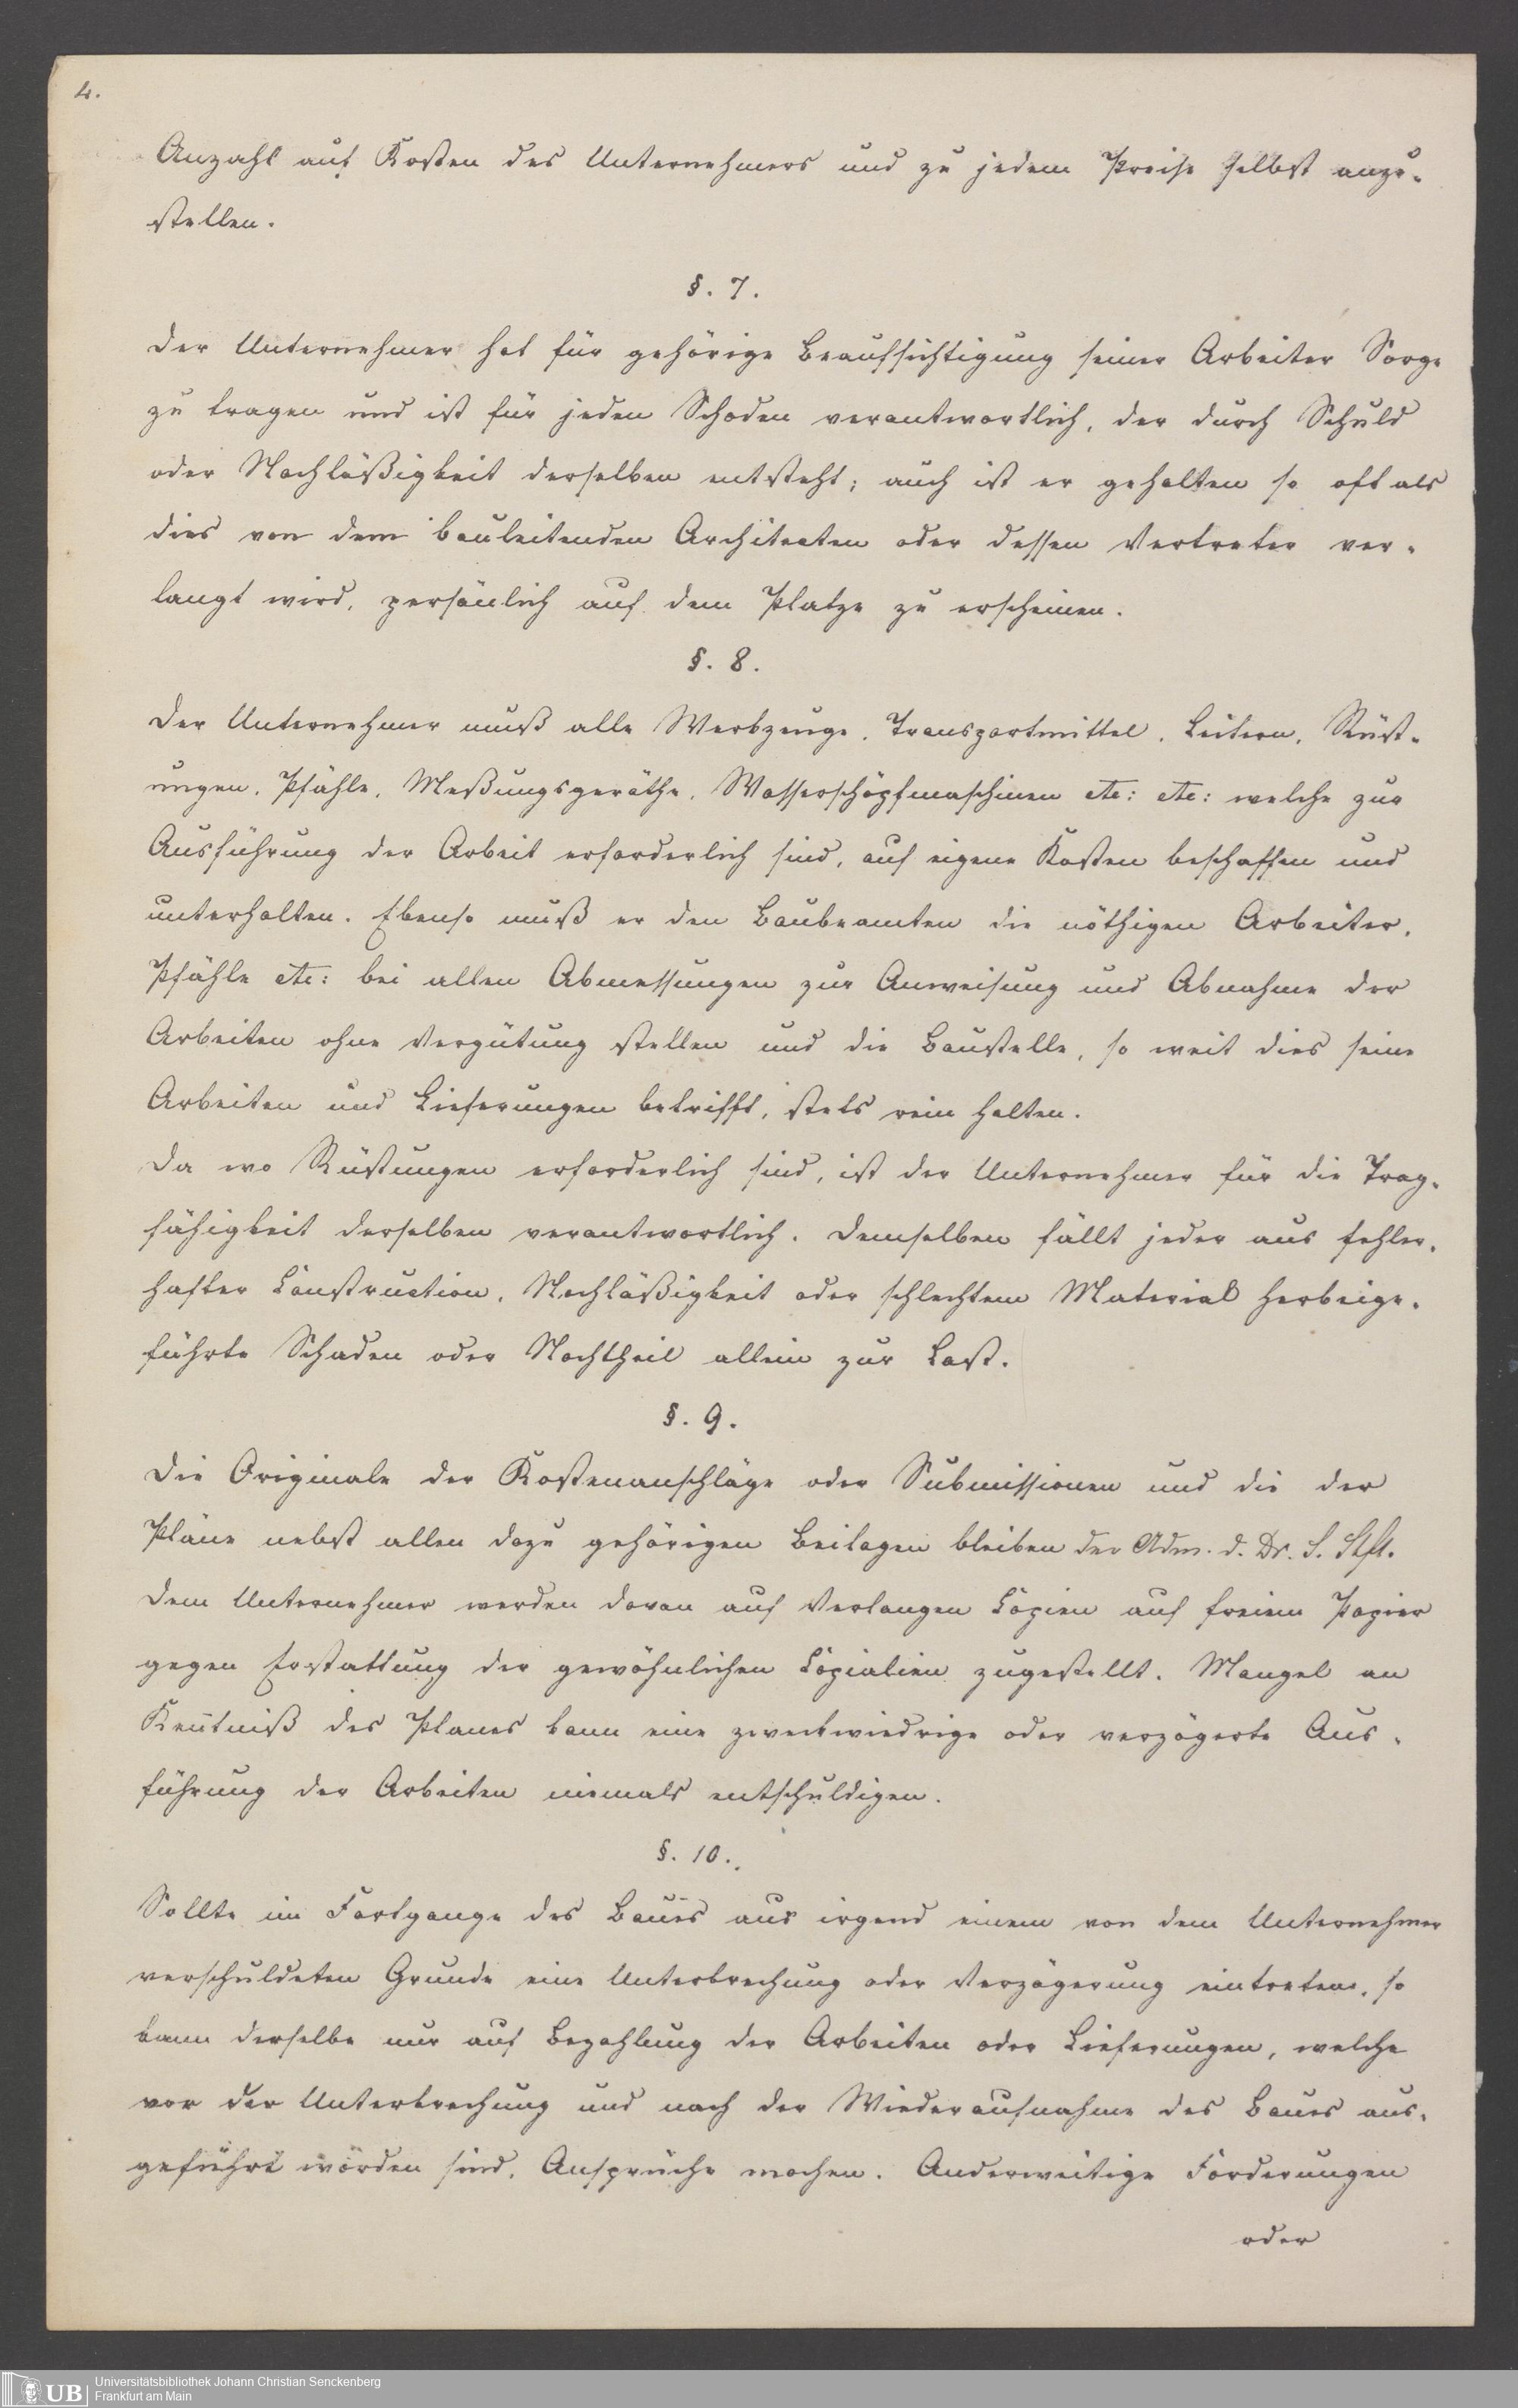 4.
Anzahl auf Kosten des Unternehmers und zu jedem Preise selbst anzu-
stellen.
§. 7.
Der Unternehmer hat für gehörige Beaufsichtigung seiner Arbeiter Sorge
zu tragen und ist für jeden Schaden verantwortlich, der durch Schuld
oder Nachläßigkeit derselben entsteht; auch ist er gehalten so oft als
dies von dem bauleitenden Architecten oder dessen Vertreter ver-
langt wird, persönlich auf dem Platze zu erscheinen.
§. 8.
Der Unternehmer muß alle Werkzeuge, Transportmittel, Leitern, Rüst-
ungen, Pfähle, Meßungsgeräthe, Wasserschöpfmaschinen etc: etc: welche zur
Ausführung der Arbeit erforderlich sind, auf eigene Kosten beschaffen und
unterhalten. Ebenso muß er den Baubeamten die nöthigen Arbeiter,
Pfähle etc: bei allen Abmessungen zur Anweisung und Abnahme der
Arbeiten ohne Vergütung stellen und die Baustelle, so weit dies seine
Arbeiten und Lieferungen betrifft, stets rein halten.
Da wo Rüstungen erforderlich sind, ist der Unternehmer für die Trag-
fähigkeit derselben verantwortlich. Demselben fällt jeder aus fehler-
hafter Construction, Nachläßigkeit oder schlechtem Material herbeige-
führte Schaden oder Nachtheil allein zur Last.
§. 9.
Die Originale der Kostenanschläge oder Submissionen und die der
Pläne nebst allen dazu gehörigen Beilagen bleiben der Adm. d. Dr. S. Stft.
Dem Unternehmer werden davon auf Verlangen Copien auf freiem Papier
gegen Erstattung der gewöhnlichen Copialien zugestellt. Mangel an
Keñtniß des Planes kann eine zweckwiedrige oder verzögerte Aus-
führung der Arbeiten niemals entschuldigen.
§. 10.
Sollte im Fortgange des Baues aus irgend einem von dem Unternehmer
verschuldeten Grunde eine Unterbrechung oder Verzögerung eintreten, so
kann derselbe nur auf Bezahlung der Arbeiten oder Lieferungen, welche
vor der Unterbrechung und nach der Wiederaufnahme des Baues aus-
geführt worden sind, Ansprüche machen. Anderweitige Forderungen
oder
UB
Universitätsbibliothek Johann Christian Senckenberg
Frankfurt am Main